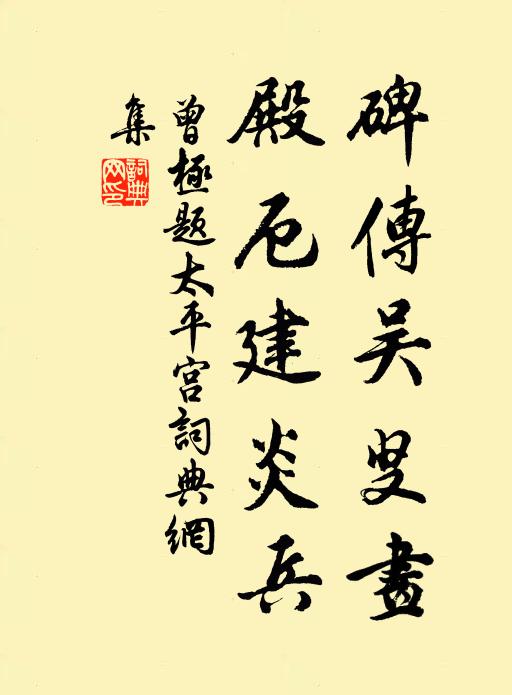 碑傳吴叟畫
殿厄建炎兵
曾極題太平宫詞典網
集
詞典網印